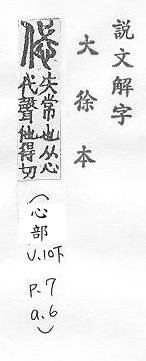 說文解字
大徐本
失常也从心
代聲他得切
(心部
V.10下
P.7
a.6)